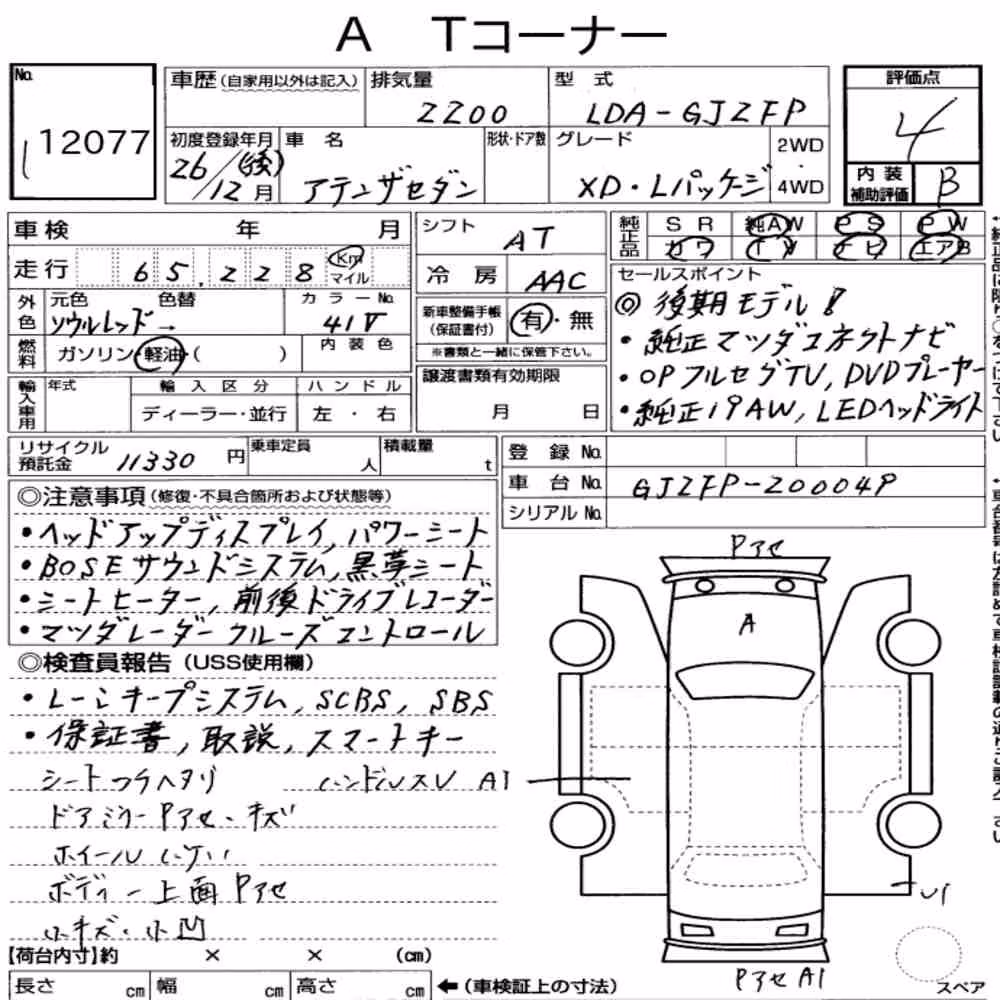 A Tコーナー
No.
12077
車歴(自家用以外は記入)
排気量
2200
型式
LDA-GJ2FP
評価点
4
初度登録年月
26/12月
(後)
車名
アテンザセダン
形状・ドア数
グレード
XD・Lパッケージ
2WD
・
4WD
内装
補助評価
B
車検 年 月
走行 65,228 Km マイル
外色
元色 色替
ソウルレッド→
カラーNo.
41V
燃料
ガソリン・軽油・( )
内装色
輸入車用
年式
輸入区分
ディーラー・並行
ハンドル
左・右
シフト
AT
冷房
AAC
新車整備手帳
(保証書付)
有・無
※書類と一緒に保管下さい。
譲渡書類有効期限
月 日
純正品
SR 純AW PS PW
カワ TV ナビ エアB
セールスポイント
◎後期モデル!
・純正マツダコネクトナビ
・OPフルセグTV, DVDプレーヤー
・純正19AW, LEDヘッドライト
リサイクル
預託金 11330 円
乗車定員
人
積載量
t
登録No.
車台No. GJ2FP-200049
シリアルNo.
◎注意事項(修復・不具合箇所および状態等)
・ヘッドアップディスプレイ, パワーシート
・BOSEサウンドシステム, 黒革シート
・シートヒーター, 前後ドライブレコーダー
・マツダレーダークルーズコントロール
◎検査員報告(USS使用欄)
・レーンキープシステム, SCBS, SBS
・保証書, 取説, スマートキー
シートコゲヘタリ ハンドルスレ A1
ドアミラーPアセ・キズ
ホイール
ボディー上面Pアセ
小キズ・小凹
【荷台内寸】約 × × (cm)
長さ cm 幅 cm 高さ cm
←(車検証上の寸法)
Pアセ
A
U1
Pアセ A1
スペア